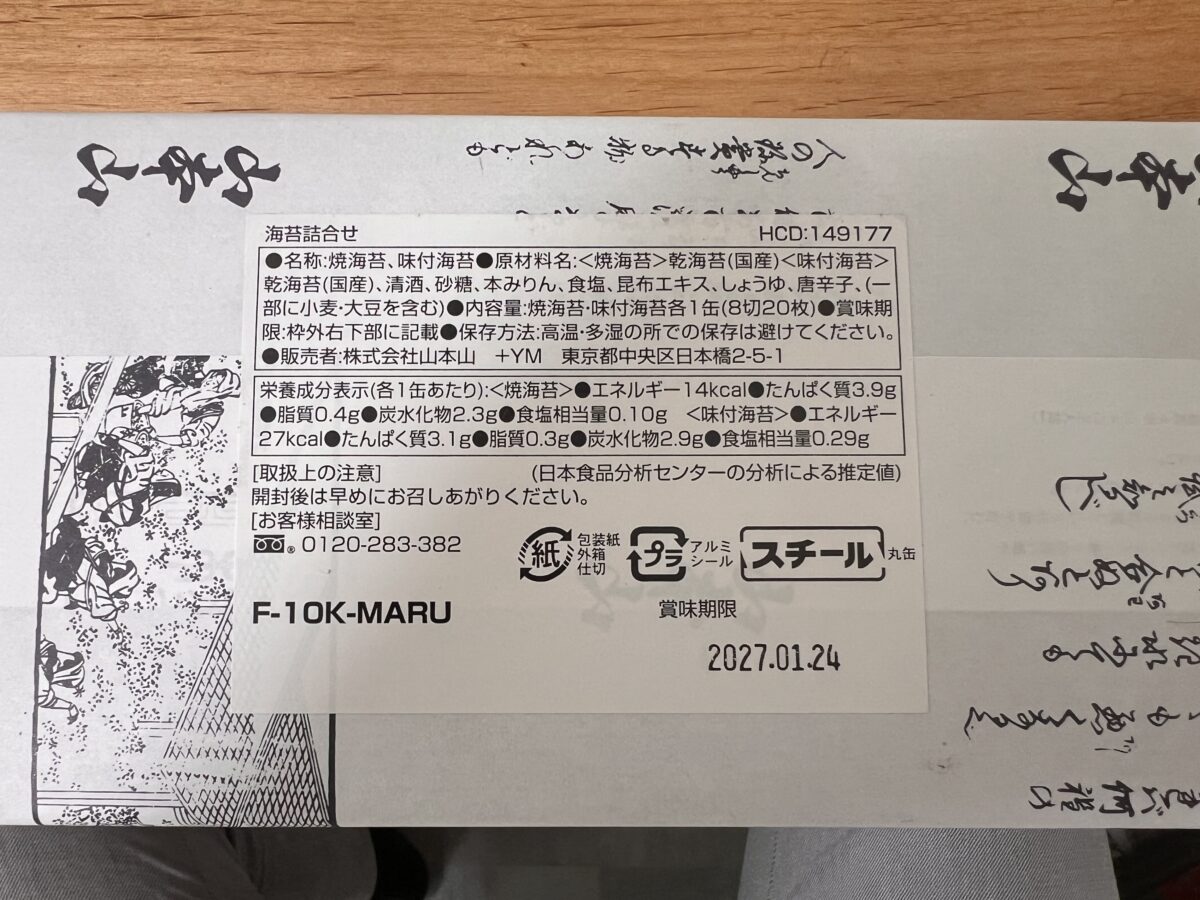 山本山
山本山
海苔詰合せ HCD:149177
●名称:焼海苔、味付海苔●原材料名:<焼海苔>乾海苔(国産)<味付海苔>
乾海苔(国産)、清酒、砂糖、本みりん、食塩、昆布エキス、しょうゆ、唐辛子、(一
部に小麦・大豆を含む)●内容量:焼海苔・味付海苔各1缶(8切20枚)●賞味期
限:枠外右下部に記載●保存方法:高温・多湿の所での保存は避けてください。
●販売者:株式会社山本山 +YM 東京都中央区日本橋2-5-1
栄養成分表示(各1缶あたり):<焼海苔>●エネルギー14kcal●たんぱく質3.9g
●脂質0.4g●炭水化物2.3g●食塩相当量0.10g <味付海苔>●エネルギー
27kcal●たんぱく質3.1g●脂質0.3g●炭水化物2.9g●食塩相当量0.29g
[取扱上の注意] (日本食品分析センターの分析による推定値)
開封後は早めにお召しあがりください。
[お客様相談室]
0120-283-382
紙 包装紙
外箱
仕切
プラ アルミ
シール
スチール 丸缶
F-10K-MARU 賞味期限
2027.01.24